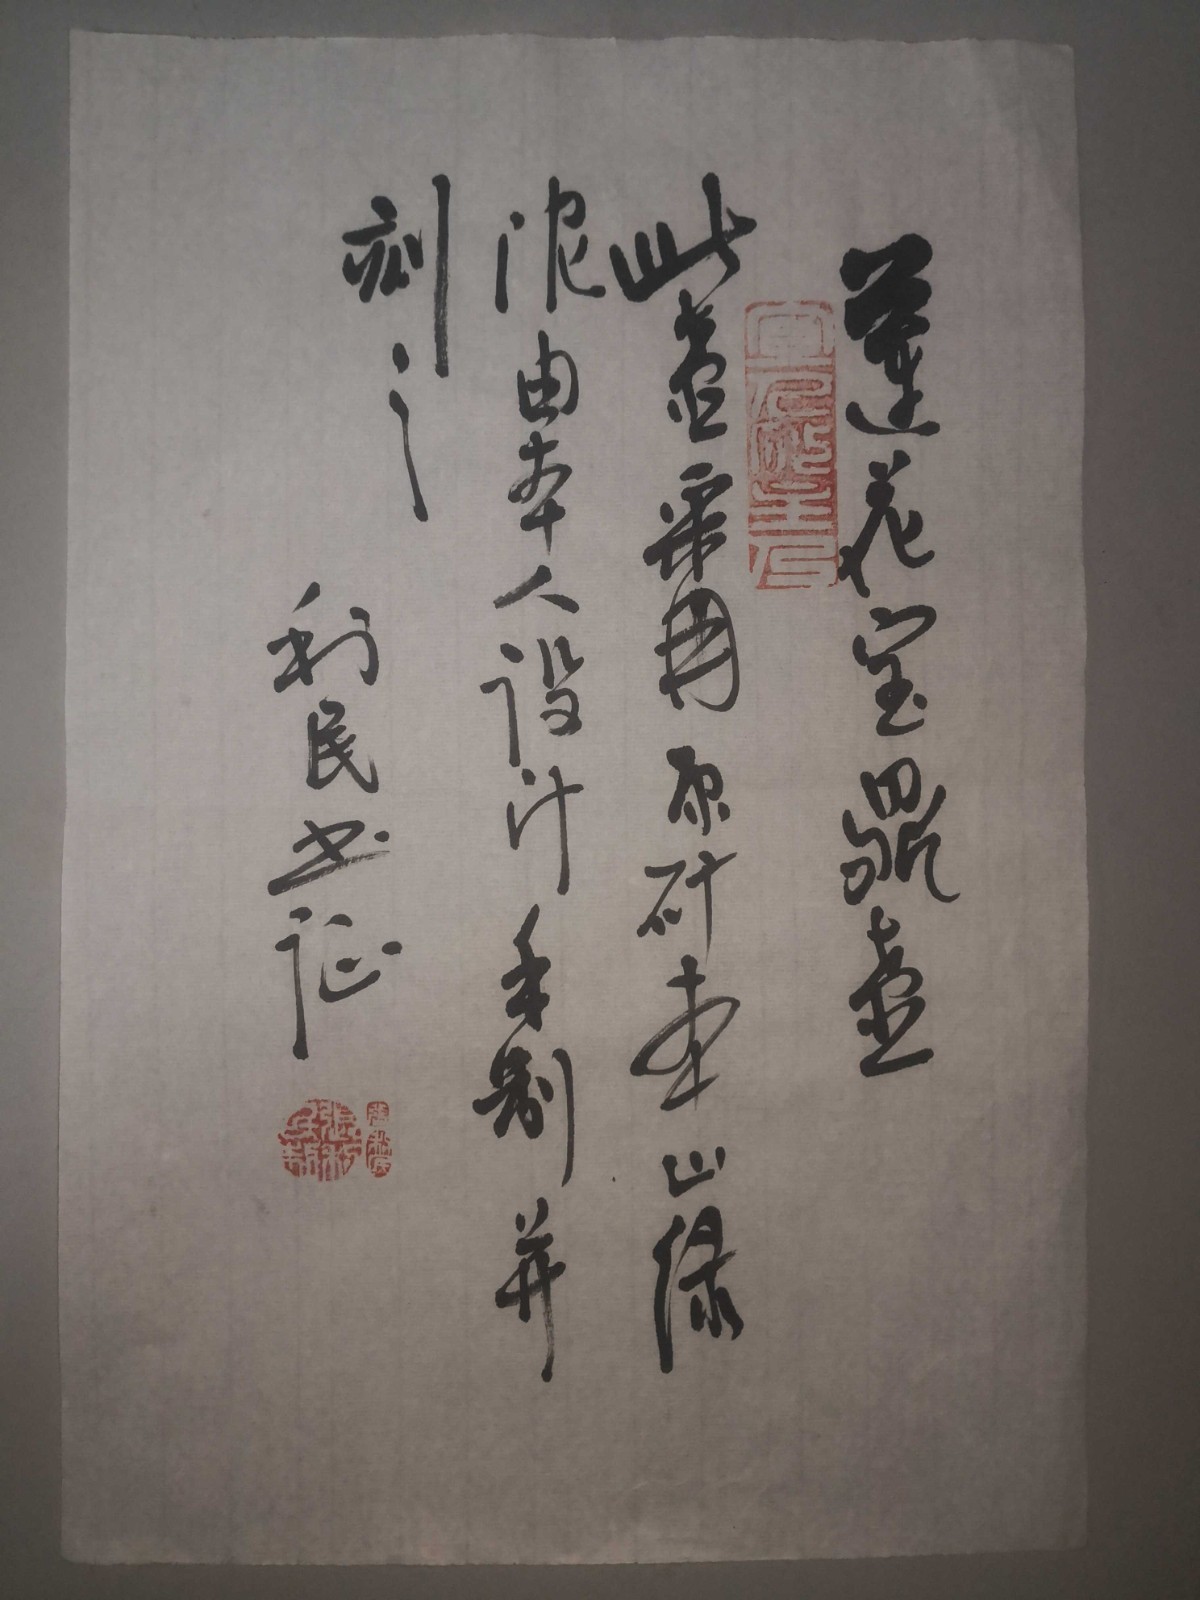 莲花宝鼎壶
此壶采用原矿本山绿
泥由本人设计手制并
刻之
利民书证